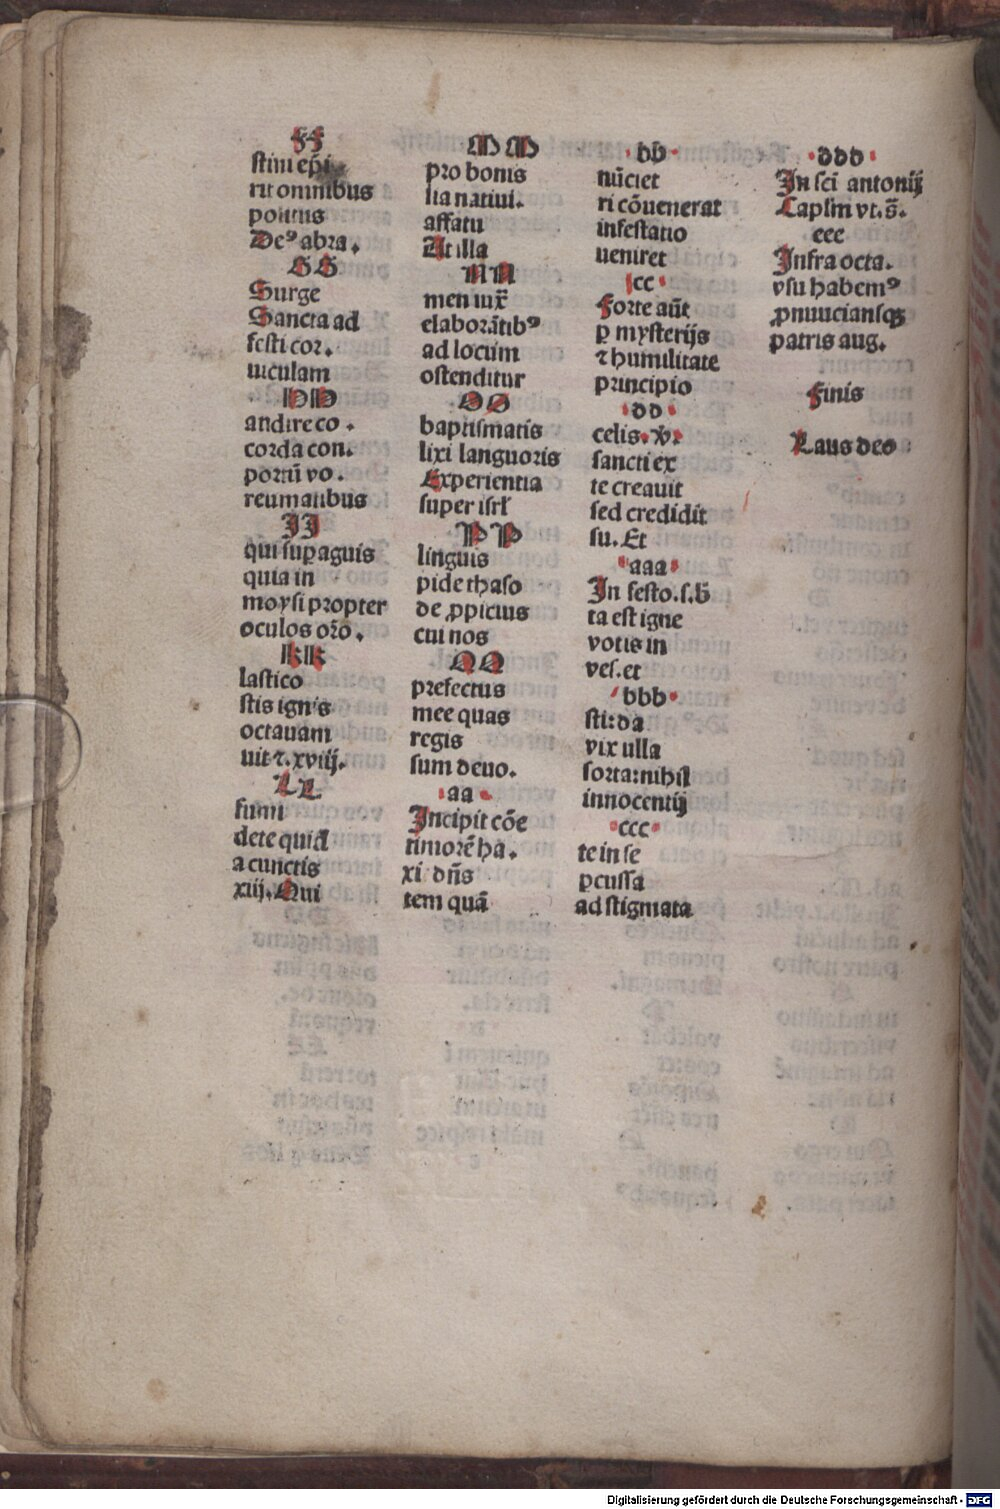 FF
stini epi
rit omnibus
politus
Deꝰ abra.
GG
Surge
Sancta ad
festi cor.
uiculam
HH
andire co.
corda con.
portū vo.
reumatibus
JJ
qui suꝑaguis
quia in
moysi propter
oculos oro.
KK
lastico
stis ignis
octauam
uit ⁊. xviij.
LL
sumi
dete quid
a cunctis
xiij. Qui
MM
pro bonis
lia natiui.
affatu
At illa
NN
men iux̄
elaborātibꝰ
ad locum
ostenditur
OO
baptismatis
lixi languoris
Experientia
super isrl
PP
linguis
pide thaso
de ꝓpicius
cui nos
QQ
prefectus
mee quas
regis
sum deuo.
aa
Incipit cōe
timorē ha.
xi dn̄s
tem quā
bb
nūciet
ri cōuenerat
infestatio
ueniret
cc
Forte aūt
ꝑ mysterijs
⁊ humilitate
principio
dd
celis. ꝟ.
sancti ex
te creauit
sed credidit
su. Et
aaa
In festo. s. b̄
ta est igne
votis in
ves. et
bbb
sti: da
vix ulla
sorta: nihil
innocentij
ccc
te in se
ꝑcussa
ad stigmata
ddd
In sci antonij
Caplm vt. s̄.
eee
Infra octa.
vsu habemꝰ
ꝓnunciansqꝫ
patris aug.
Finis
Laus deo
Digitalisierung gefördert durch die Deutsche Forschungsgemeinschaft - DFG